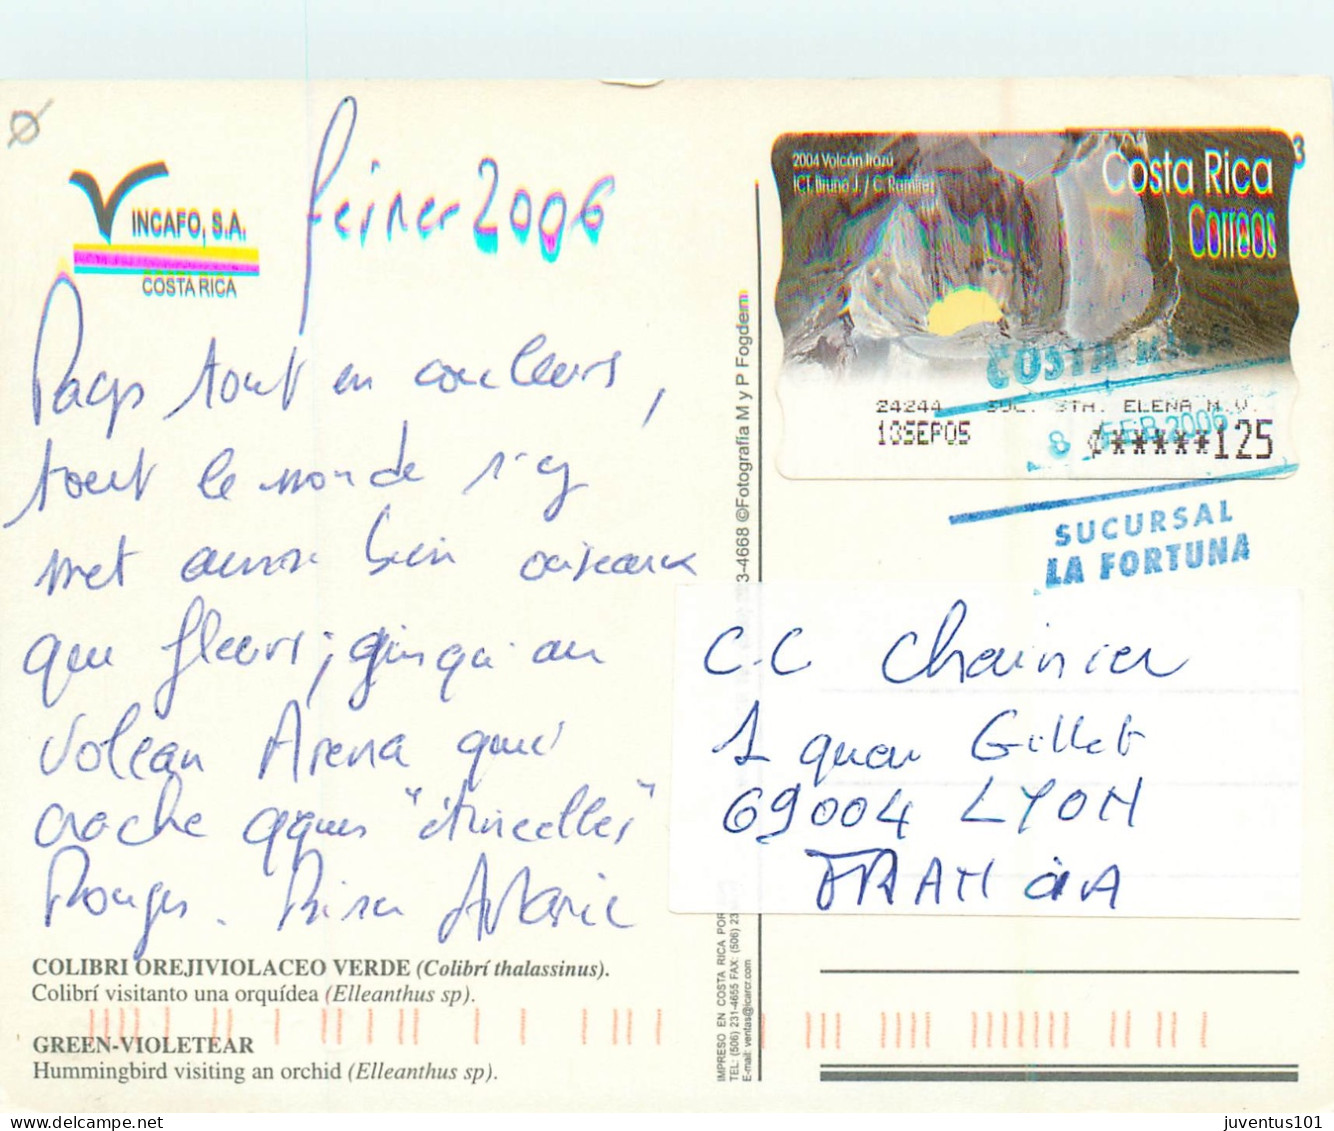 INCAFO, S.A.
COSTA RICA
février 2006
Pays tout en couleurs,
tout le monde s'y
met aussi bien oiseaux
que fleurs; jusqu'au
Volcan Arena qui
crache qques "étincelles"
Rouges. Bises
COLIBRI OREJIVIOLACEO VERDE (Colibrí thalassinus).
Colibrí visitanto una orquídea (Elleanthus sp).
GREEN-VIOLETEAR
Hummingbird visiting an orchid (Elleanthus sp).
3-4668 ©Fotografía M y P Fogden
IMPRESO EN COSTA RICA POR
TEL: (506) 231-4655 FAX: (506) 23
E-mail: ventas@icarcr.com
2004 Volcán Irazú
ICT Bruno J. / C. Ramírez
Costa Rica
Correos
24244 SUC. STA. ELENA M.V.
18SEP05 ¢*****125
COSTA RICA
8 FEB 2006
SUCURSAL
LA FORTUNA
C.C Chainier
1 quai Gillet
69004 LYON
FRANCIA
juventus101